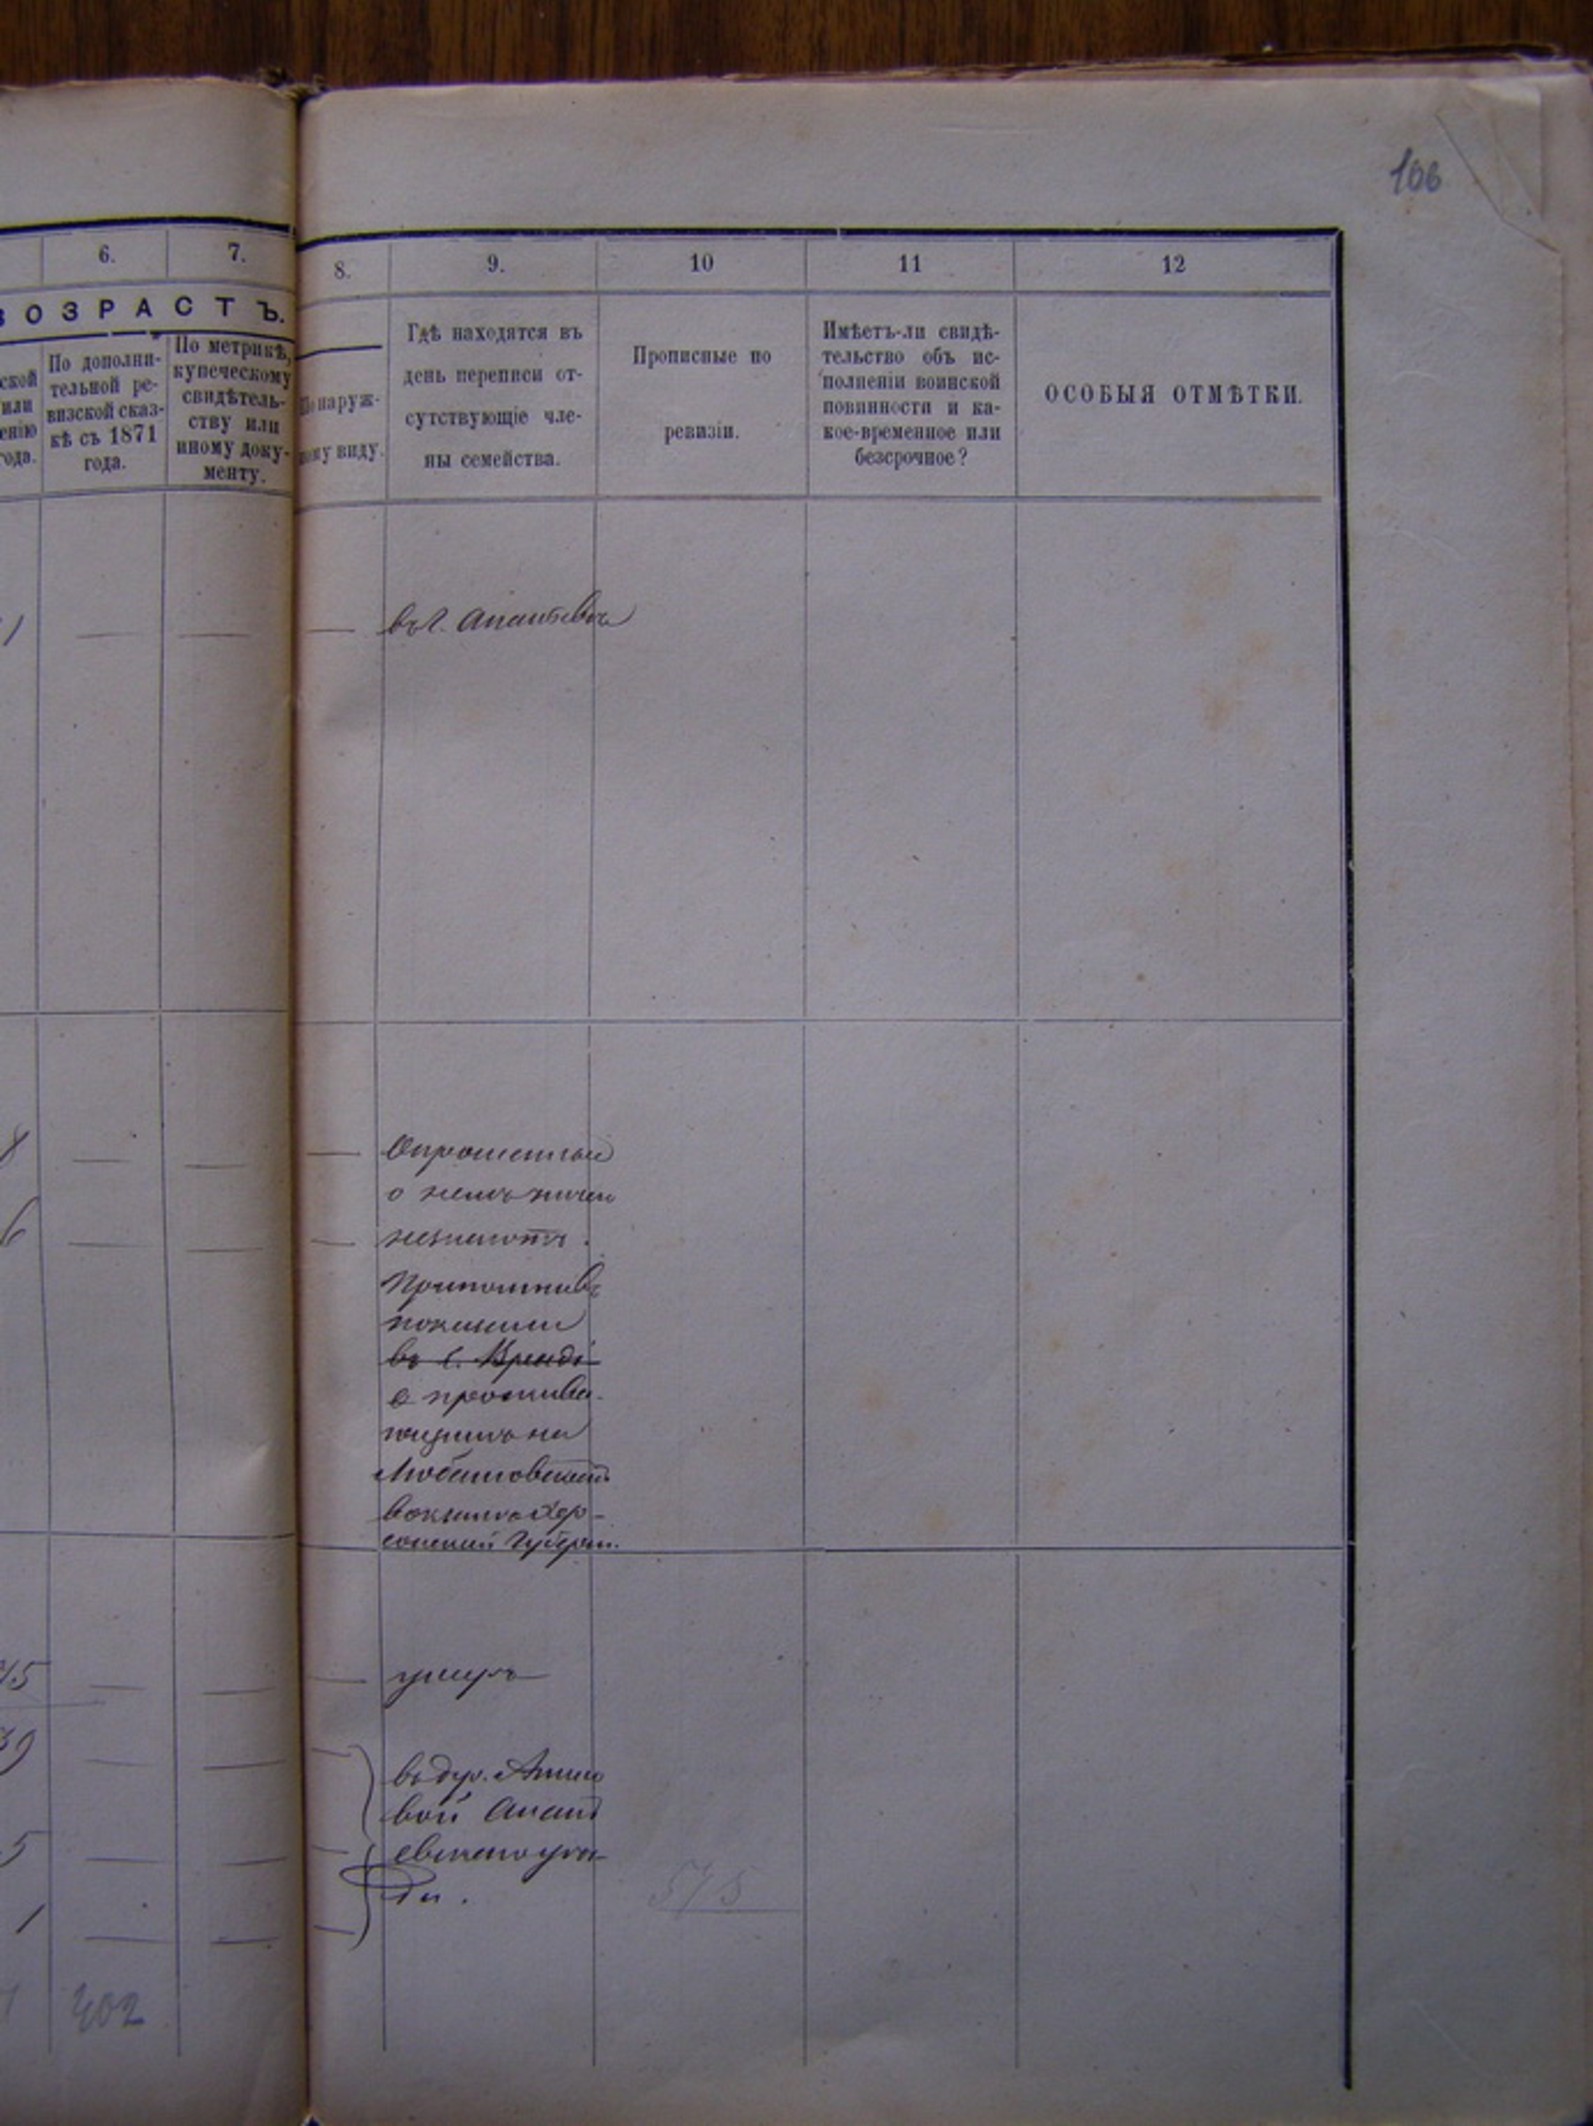 106
6.
7.
8.
9.
10
11
12
ВОЗРАСТЪ.
ской
или
енію
года.
По дополни-
тельной ре-
визской сказ-
кѣ съ 1871
года.
По метрикѣ,
купеческому
свидѣтель-
ству или
иному доку-
менту.
По наруж-
ному виду.
Гдѣ находятся въ
день переписи от-
сутствующіе чле-
ны семейства.
Прописные по
ревизіи.
Имѣетъ-ли свидѣ-
тельство объ ис-
полненіи воинской
повинности и ка-
кое-временное или
безсрочное?
ОСОБЫЯ ОТМѢТКИ.
1
въ г. Ананьевѣ
8
Опрошенные
о немъ ничего
6
незнаютъ.
Припомнивъ
показали
въ с.
о прожива-
ющимъ на
вокзалѣ Хер-
сонской Губерніи.
45
умеръ
39
въ дер.
вой Анань
5
евскаго уѣз-
да.
578
1
402